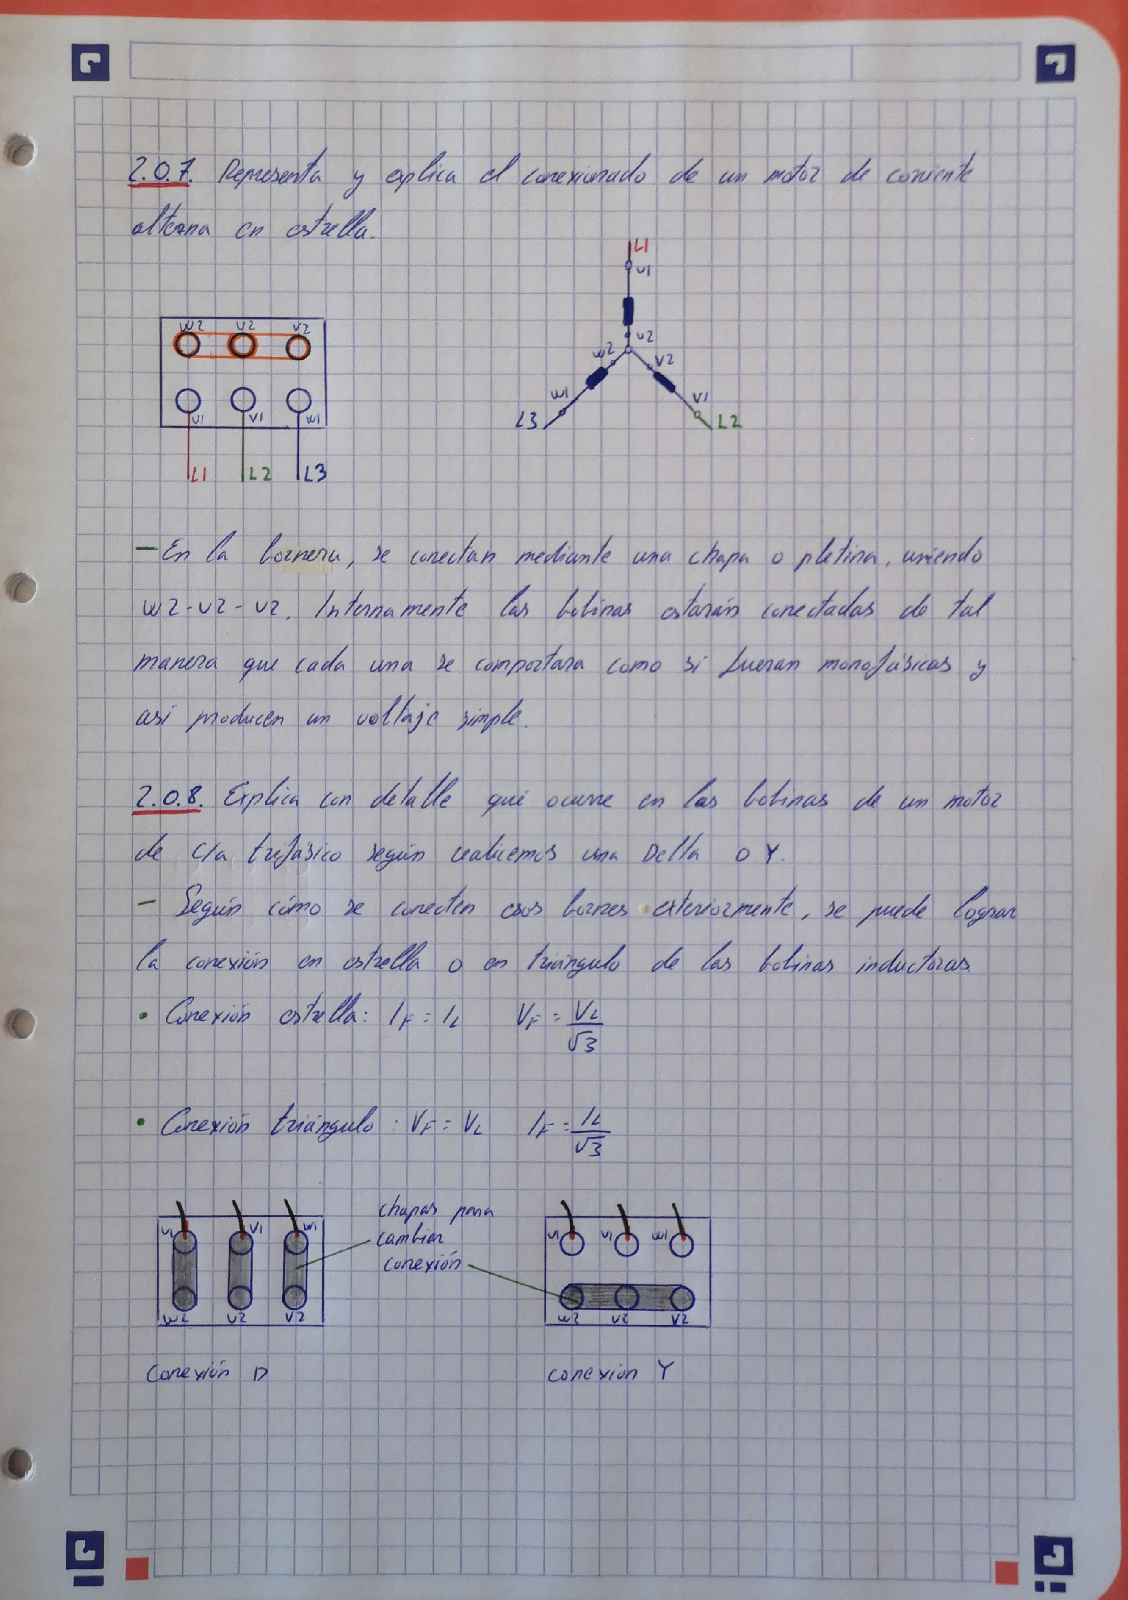 2.0.7. Representa y explica el conexionado de un motor de corriente
alterna en estrella.
L1
U1
U2
W2
V2
W1
V1
L3
L2
W2 U2 V2
U1 V1 W1
L1 L2 L3
- En la bornera, se conectan mediante una chapa o pletina, uniendo
W2-U2-V2. Internamente las bobinas estarán conectadas de tal
manera que cada una se comportara como si fueran monofásicas y
así producen un voltaje simple.
2.0.8. Explica con detalle qué ocurre en las bobinas de un motor
de c/a trifásico según realicemos una Delta o Y.
- Según cómo se conecten esos bornes exteriormente, se puede lograr
la conexión en estrella o en triángulo de las bobinas inductoras
• Conexión estrella: IF = IL VF = VL/√3
• Conexión triángulo: VF = VL IF = IL/√3
chapas para
cambiar
conexión
U1 V1 W1
W2 U2 V2
Conexión D
U1 V1 W1
W2 U2 V2
conexión Y